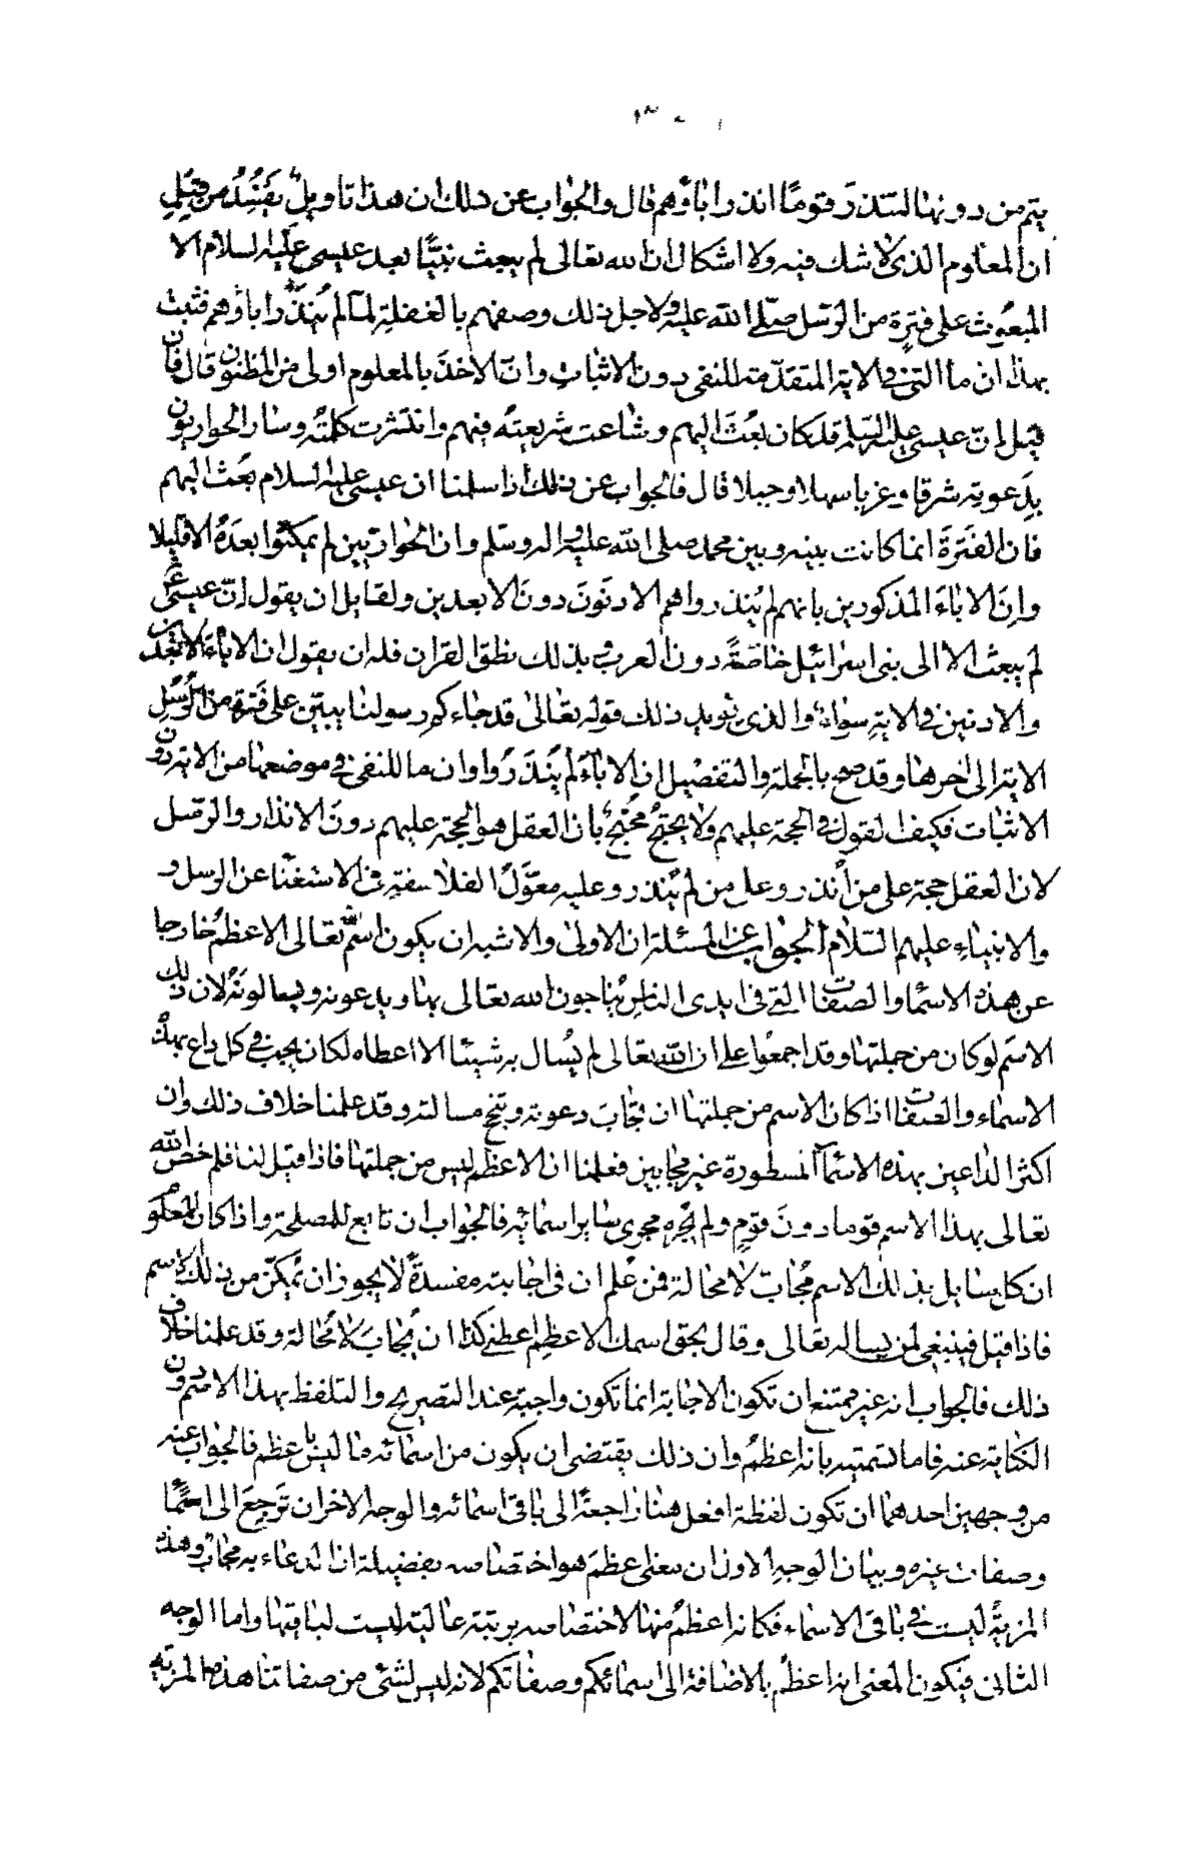 يتم من دونها لتنذر قومًا انذر اباؤهم قال والجواب عن ذلك ان هذا تاويلٌ يَفسُدُ من قِبَلِ
ان المعلوم الذى لا شك فيه ولا اشكال ان الله تعالى لم يبعث نبيًّا بعد عيسى عليه السلام الا
المبعوث على فترةٍ من الرّسل صلى الله عليه ولاجل ذلك وصفهم بالغفلةِ لما لم يُنذَر اباؤهم فثبت
بهذا ان ما التى فى الاية المتقدّمة للنفى دون الاثبات وانّ الاخذَ بالمعلوم اولى من المظنون قال فان
قيل انّ عيسى عليه السلم قد كان بُعثَ اليهم وشاعت شريعتُه فيهم وانتشرت كلمتُه وسار الحواريون
بدَعوته شرقا وغربا سهلا وجبلا قال فالجواب عن ذلك اذا سلمنا ان عيسى عليه السلام بُعث اليهم
فان الفَترةَ انما كانت بينه وبين محمد صلى الله عليه واله وسلم وان الحواريّين لم يمكثوا بعدَهُ الا قليلا
وانّ الاباءَ المذكورين بانهم لم يُنذروا هم الادنَونَ دونَ الابعدين ولقايل ان يقول انّ عيسى ع
لم يبعث الا الى بنى اسرائيل خاصّةً دون العرب بذلك نطق القران فله ان يقول ان الاباءَ الابعدين
والادنين فى الاية سواءٌ والذى يؤيد ذلك قوله تعالى قد جاءكم رسولنا يبيّن على فَترة من الرُّسُلِ
الاية الى اخرها وقد صح بالجملة والتفصيل ان الاباءَ لم يُنذَرُوا وان ما للنفى فى موضعها من الاية دون
الاثبات فكيف القول فى الحجة عليهم ولا يحتجُّ مُحتجٌّ بان العقل هو الحجة عليهم دونَ الانذار والرسل
لان العقل حجة على من أُنذر وعلى من لم يُنذر وعليه معوَّلُ الفلاسفةِ فى الاستغنا عن الرسل و
والانبياءِ عليهم السّلام الجواب عن المسئلة ان الاولى والاشبه ان يكون اسمُه تعالى الاعظم خارجا
عن هذه الاسما والصفات التى فى ايدى الناس يُناجون الله تعالى بها ويدعونه ويسالونَهُ لان ذلك
الاسَم لو كان من جملتها وقد اجمعوا على ان الله تعالى لم يُسال به شيئا الا اعطاه لكان يجب فى كل داع بهذه
الاسماء والصفات اذا كان الاسم من جملتها ان تجابَ دعوته وتنجح مسالته وقد علمنا خلاف ذلك وان
اكثر الداعين بهذه الاسما المسطورة غير مجابين فعلمنا ان الاعظم ليس من جملتها فاذا قيل لنا فلم خص الله
تعالى بهذا الاسم قوما دونَ قومٍ ولم يُجره مجرى ساير اسمائه فالجواب ان تابع للمصلحة واذا كان المعلوم
ان كل سايل بذلك الاسم مُجابٌ لا محالة فمن عُلم ان فى اجابته مفسدةً لا يجوز ان يُمكّن من ذلك الاسم
فاذا قيل فينبغى لمن يساله تعالى وقال بحق اسمك الاعظم اعطنى كذا ان يُجابَ لا مُحالة وقد علمنا خلاف
ذلك فالجواب انه غير ممتنع ان تكون الاجابة انما تكون واجبة عند التصريح والتلفظ بهذا الاسم دون
الكناية عنه فاما تسميته بانه اعظمُ وان ذلك يقتضى ان يكون من اسمائه ما ليس باعظم فالجواب عنه
من وجهين احدهما ان تكون لفظة افعل هنا راجعةً الى باقى اسمائه والوجه الاخر ان تَرجِعَ الى اسما
وصفات غيره وبيان الوجهِ الاول ان معنى اعظمَ هو اختصاصه بفضيلة ان الدعاء به مجابٌ وهذه
المزيّةُ ليست فى باقى الاسماء فكانه اعظمُ منها لاختصاصه برتبة عالية ليست لباقيها واما الوجه
الثانى فيكون المعنى انه اعظمُ بالاضافة الى اسمائكم وصفاتكم لانه ليس لشئ من صفاتنا هذه المزيّة